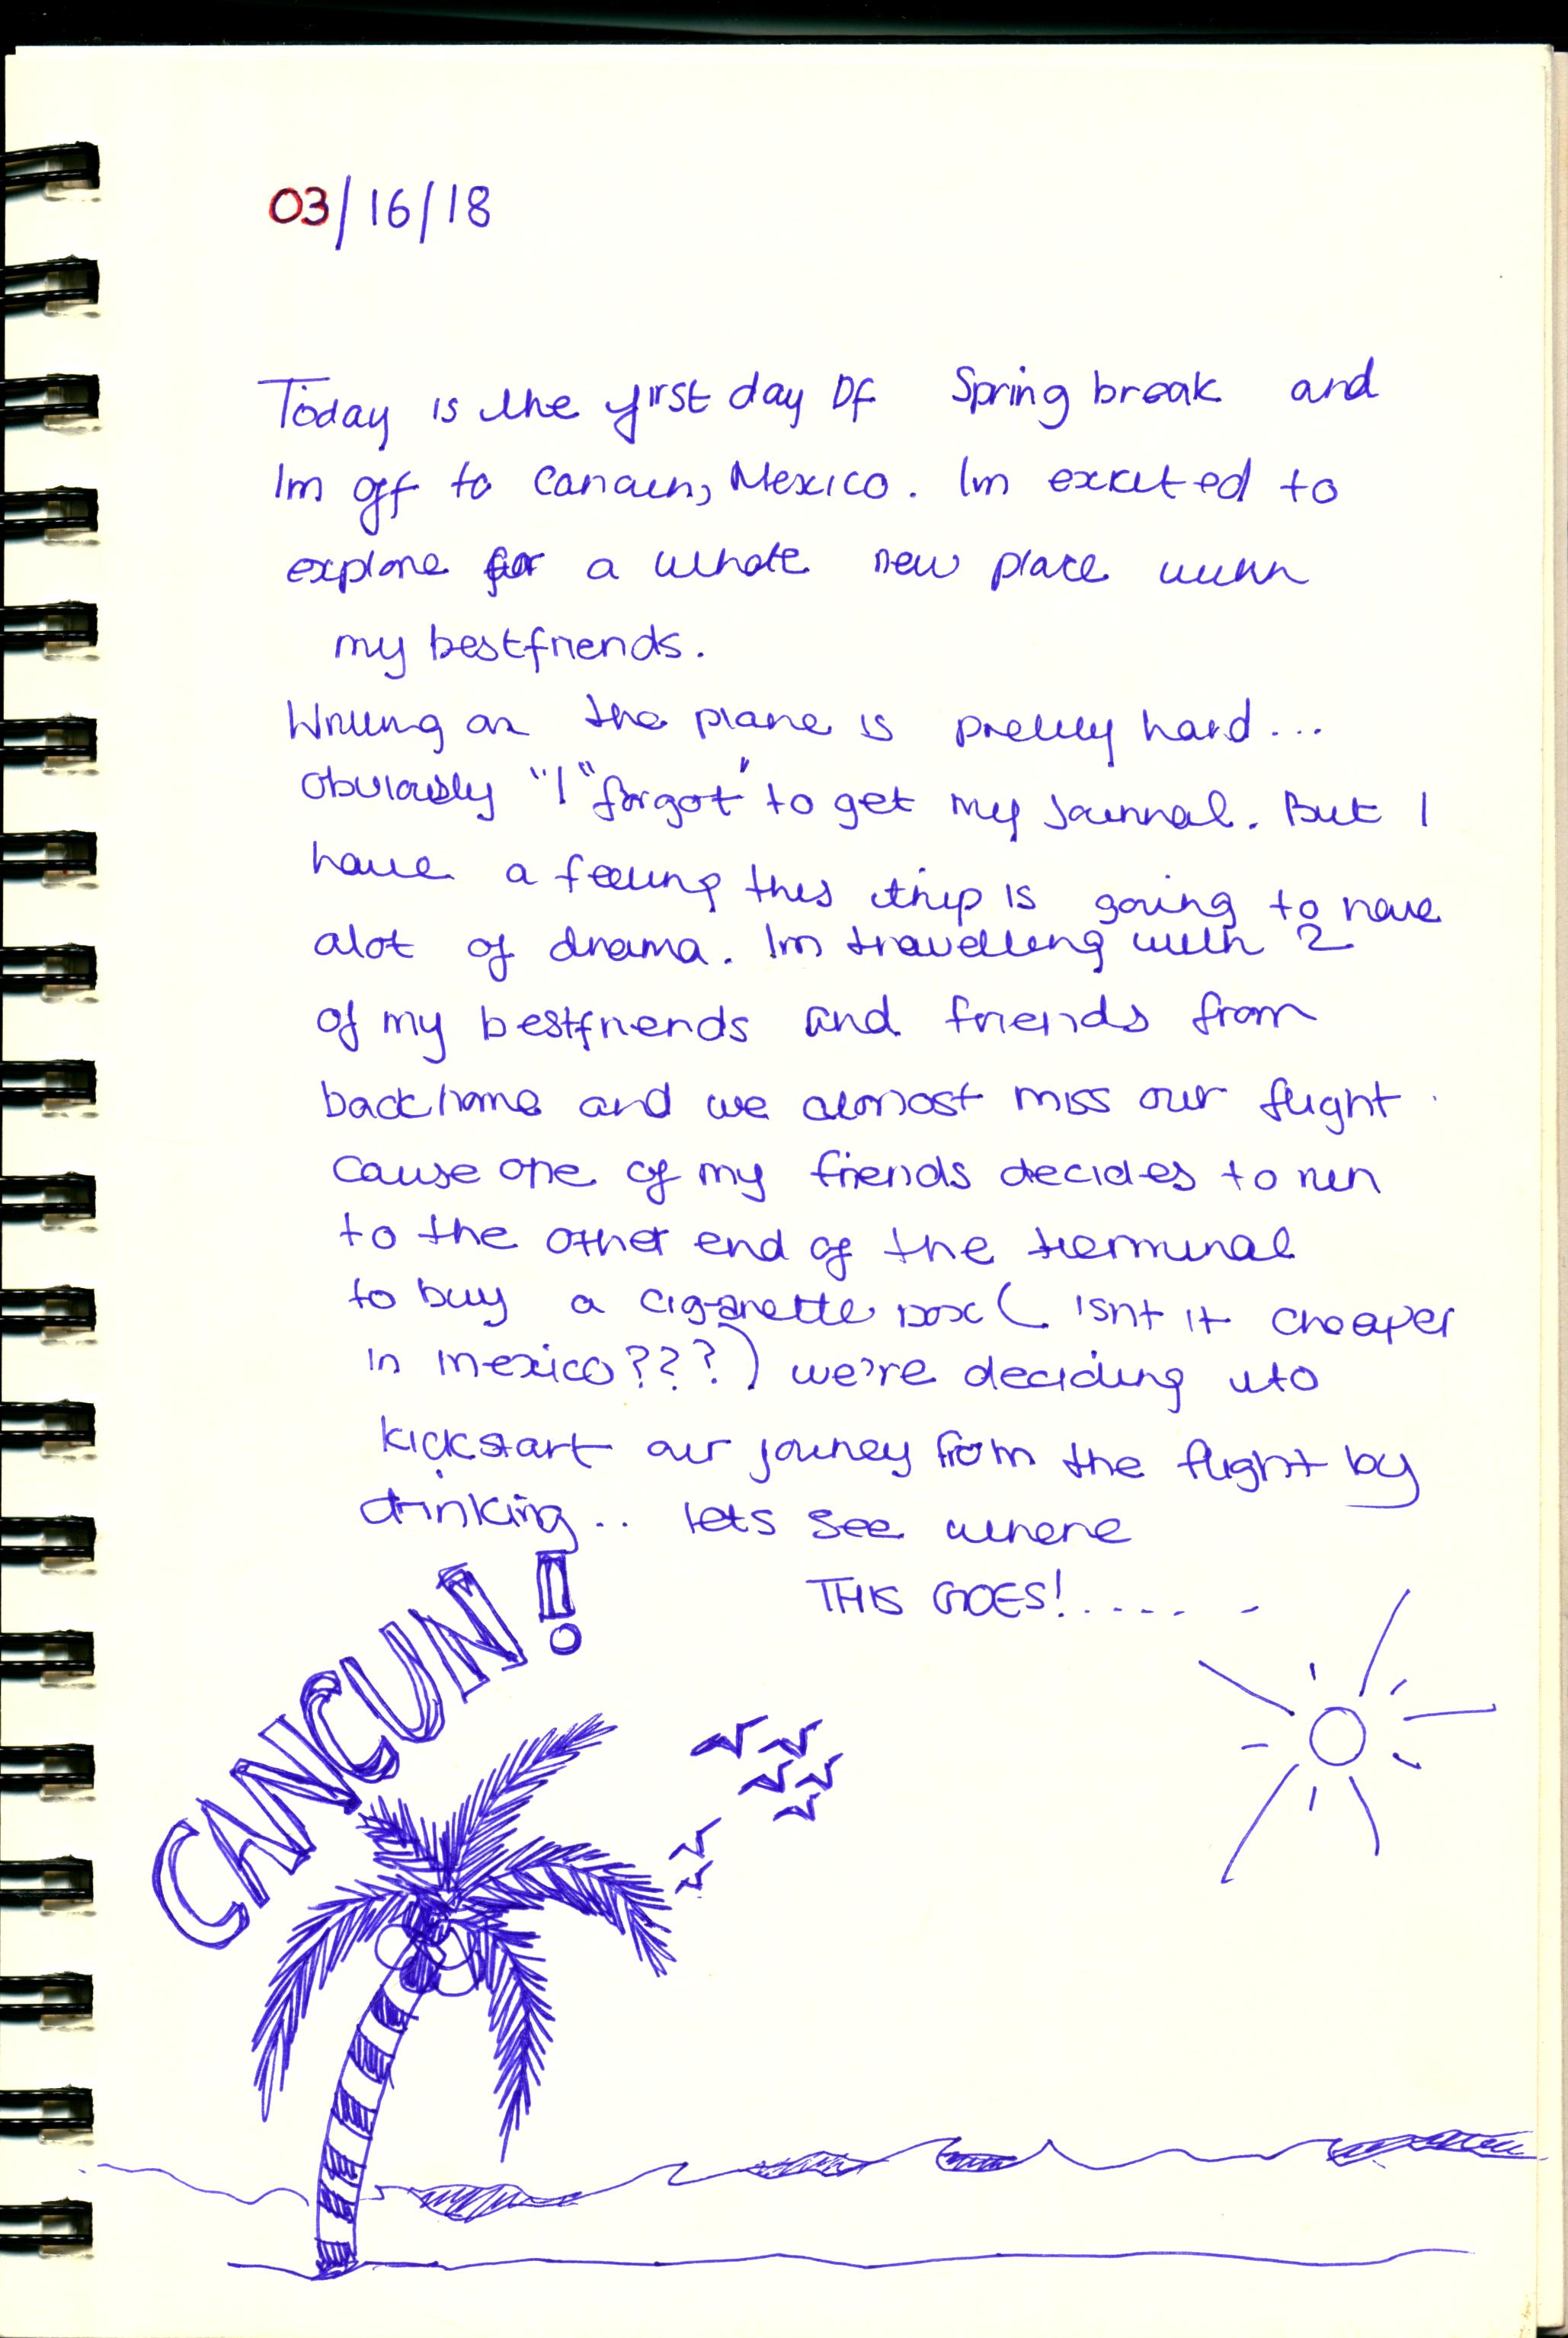 03/16/18
Today is the first day Of Spring break and
Im off to Cancun, Mexico. Im excited to
explore for a whole new place with
my bestfriends.
Writing on the plane is pretty hard...
Obviously "I "forgot" to get my Journal. But I
have a feeling this trip is going to have
alot of drama. Im travelling with 2
of my bestfriends and friends from
back home and we almost miss our flight
cause one of my friends decides to run
to the other end of the terminal
to buy a cigarette box ( isnt it cheaper
in mexico???) we're deciding to
kickstart our journey from the flight by
drinking.. lets see where
THIS GOES!.....
CANCUN!